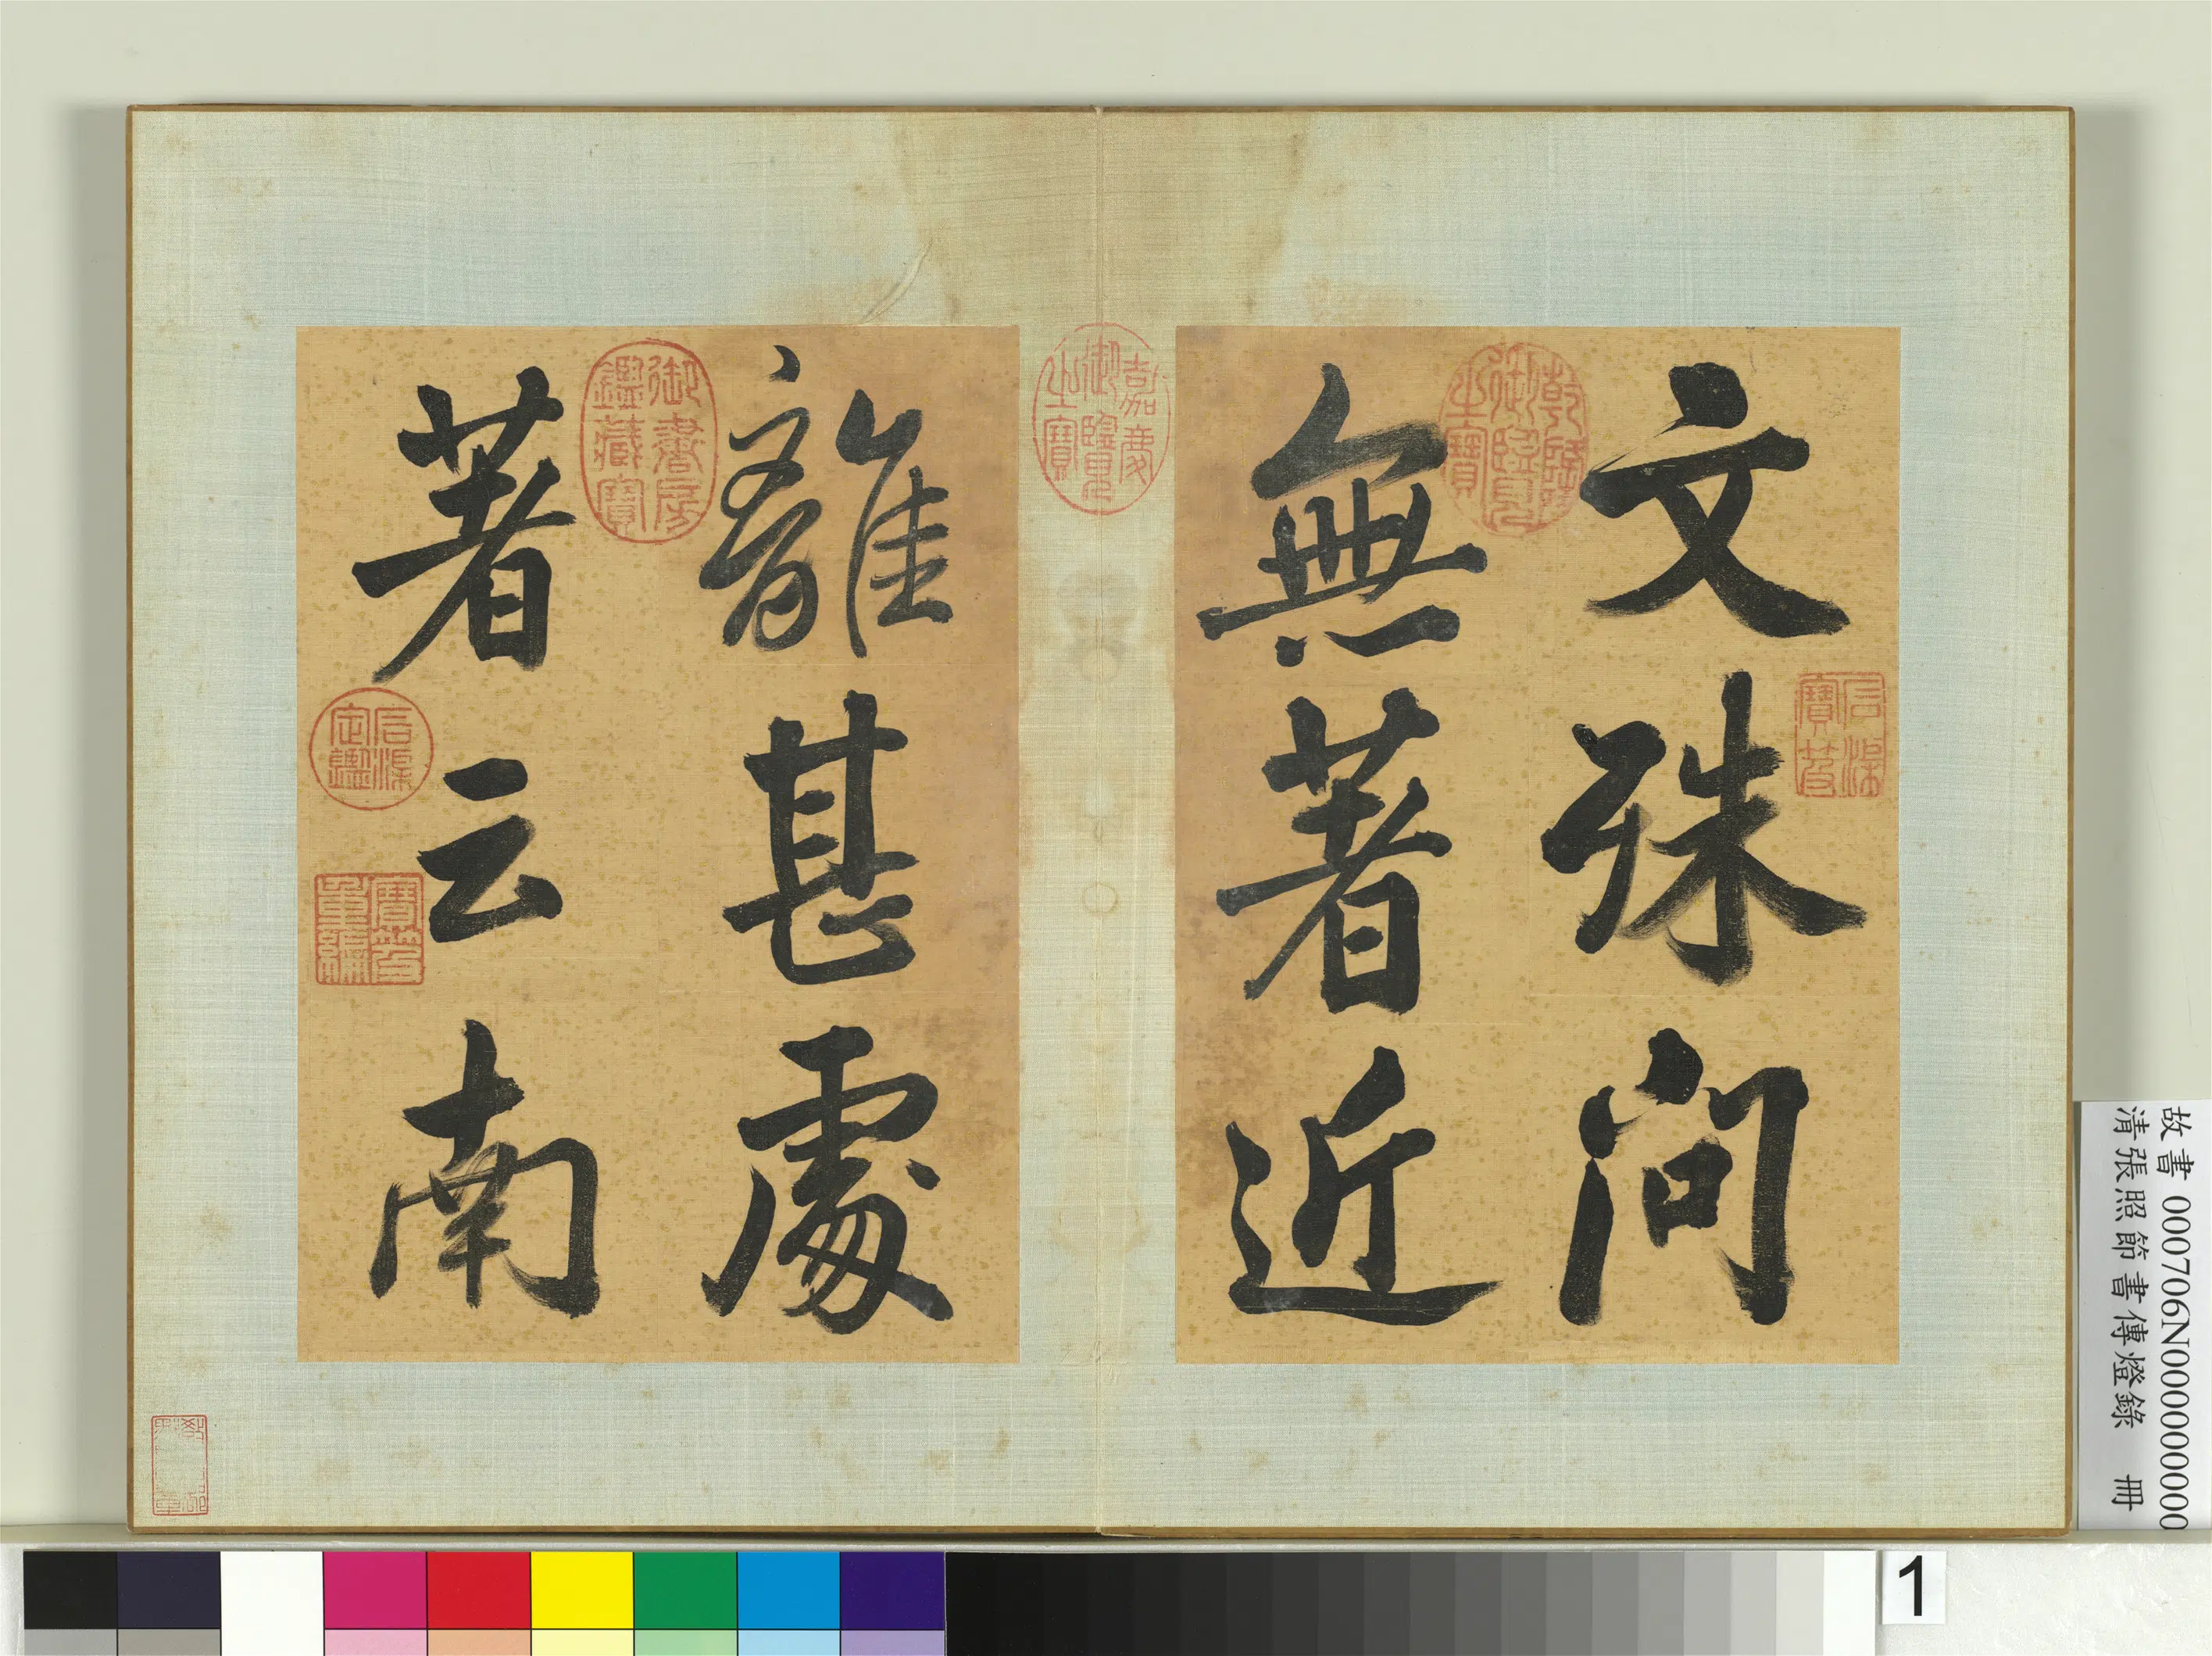 文殊问
無著近
離甚處
著云南
石渠寶笈
乾隆御覽之寶
嘉慶御覽之寶
御書房鑑藏寶
石渠定鑑
寶笈重編
故書 000706N000000000
清張照節書傳燈錄 冊
1